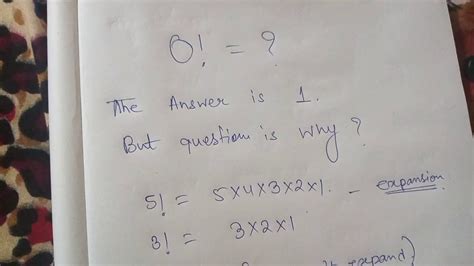 0! = ?
The Answer is 1.
But question is why?
5! = 5×4×3×2×1. - expansion
3! = 3×2×1
expand)